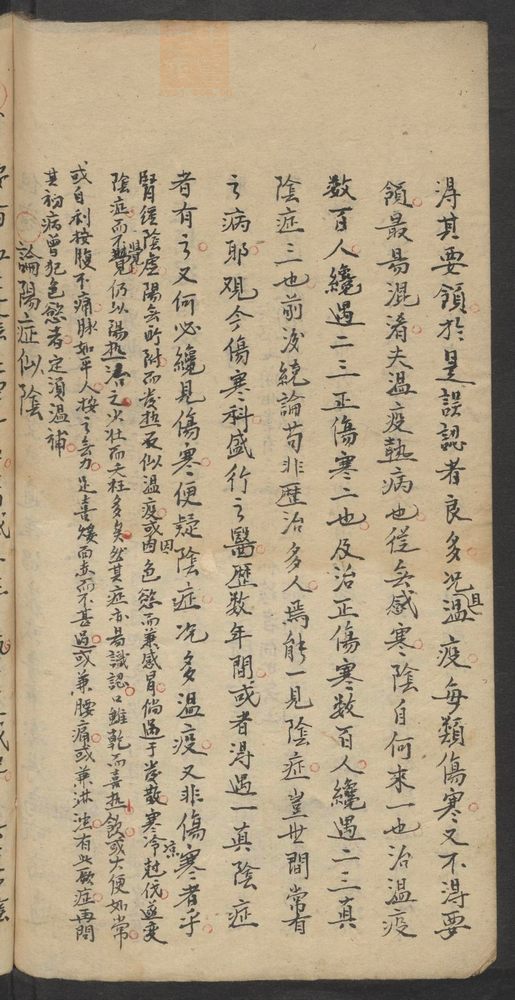 得其要領於是誤認者良多况且溫疫每類傷寒又不得要
領最易混淆夫溫疫熱病也從無感寒陰自何來一也治溫疫
數百人纔遇二三正傷寒二也及治正傷寒數百人纔遇二三真
陰症三也前後統論苟非歷治多人焉能一見陰症豈世間常有
之病耶观今傷寒科盛行之醫歷数年間或者得遇一真陰症
者有之又何必纔見傷寒便疑陰症况多溫疫又非傷寒者乎
腎經陰虛陽無所附而發热反似溫疫或因色慾而兼感冒倘過于發散寒涼尅伐遂变
陰症而不覺仍以陽热治之火壯而夭枉多矣然其症亦易識認口雖乾而喜热飲或大便如常
或自利按腹不痛脉如平人按之無力足喜煖面赤而不甚過或兼腰痛或兼淋浊有此数症再問
其初病曾犯色慾者定須溫補
論陽症似陰